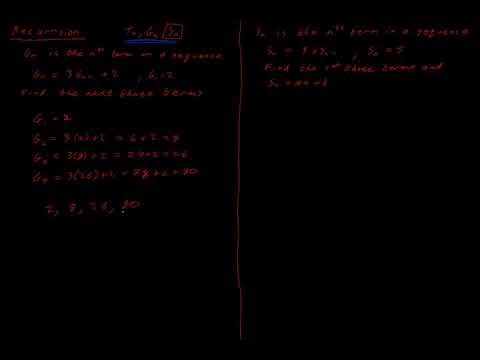 Recursion
Tn, Gn, Sn
Gn is the nth term in a sequence
Gn = 3Gn-1 + 2 , G1=2
Find the next three terms
G1 = 2
G2 = 3(2)+2 = 6+2 = 8
G3 = 3(8)+2 = 24+2 = 26
G4 = 3(26)+2 = 78+2 = 80
2, 8, 26, 80
Sn is the nth term in a sequence
, S1 = 5
Find the 1st three terms and